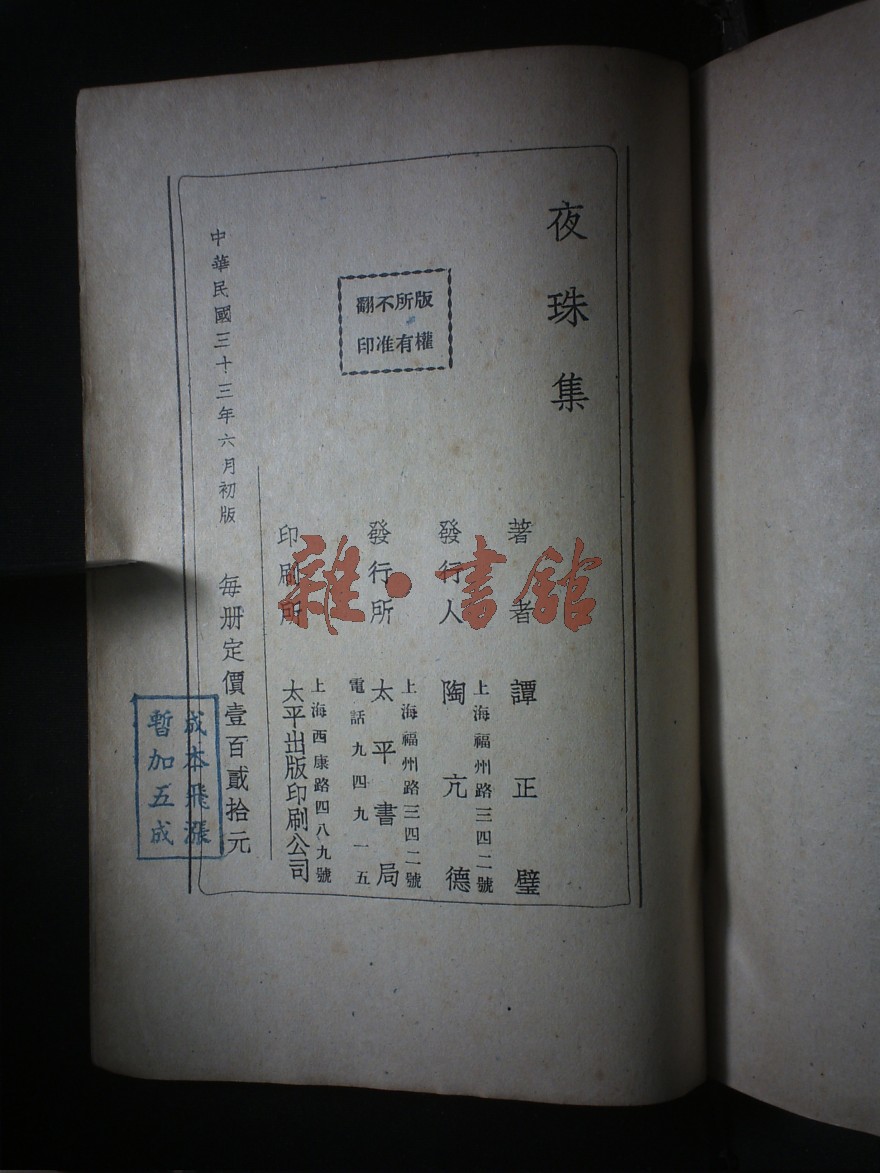 夜珠集
版權所有
不准翻印
著者 譚正璧
發行人 陶亢德
上海福州路三四二號
發行所 太平書局
上海福州路三四二號
電話九四九一五
印刷所 太平出版印刷公司
上海西康路四八九號
中華民國三十三年六月初版 每册定價壹百貳拾元
成本飛漲
暫加五成
雜·書館